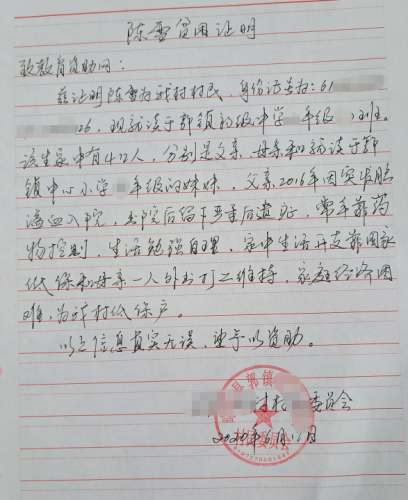 陈雪贫困证明
致教育资助网：
兹证明陈雪为我村村民，身份证号为：61
26，现就读于郭镇初级中学 年级 班。
该生家中有4口人，分别是父亲、母亲和就读于郭
镇中心小学 年级的妹妹，父亲2016年因突发脑
溢血入院，出院后留下严重后遗症，常年靠药
物控制，生活勉强自理，家中生活开支靠国家
低保和母亲一人外出打工维持，家庭经济困
难，为我村低保户。
以上信息真实无误，望予以资助。
县郭镇
村 委员会
年6月12日